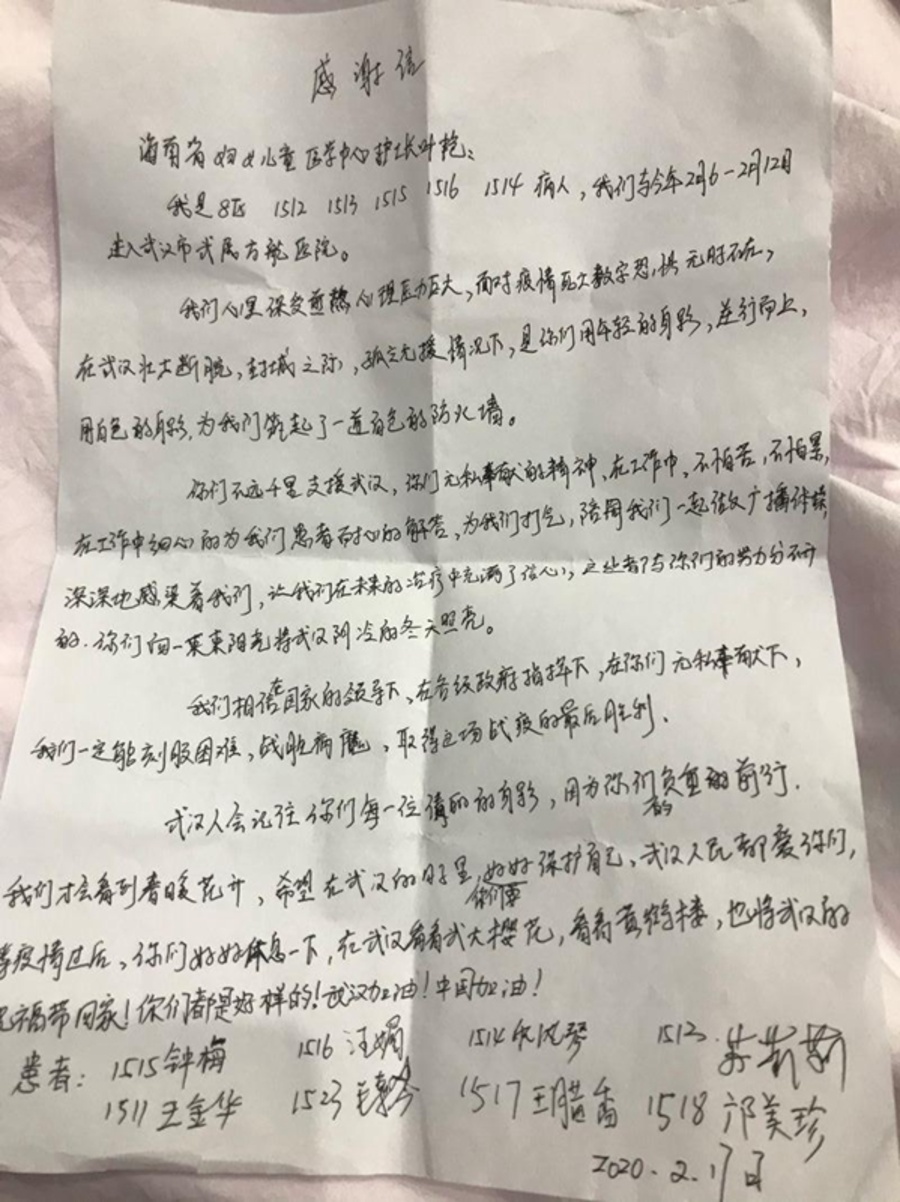 感谢信
海南省妇女儿童医学中心护士长叶艳:
我是8区 1512 1513 1515 1516 1514 病人,我们与今年2月6-2月12日
进入武汉市武展方舱医院。
我们心里深受煎熬心理压力巨大,面对疫情死亡数字恐惧无时不在,
在武汉壮士断腕,封城之际,孤立无援情况下,是你们用年轻的身影,逆行而上,
用白色的身影,为我们筑起了一道白色的防火墙。
你们不远千里支援武汉,你们无私奉献的精神,在工作中、不怕苦,不怕累,
在工作中细心的为我们患者耐心的解答,为我们打气,陪同我们一起做广播体操,
深深地感染着我们,让我们在未来的治疗中充满了信心,这些都与你们的努力分不开
的.你们向一束束阳光将武汉阴冷的冬天照亮。
我们相信在国家的领导下,在各级政府指挥下,在你们无私奉献下,
我们一定能刻服困难,战胜病魔,取得这场战疫的最后胜利.
武汉人会记住你们每一位的身影,因为你们的负重前行.
我们才会看到春暖花开,希望在武汉的日子里,你们要好好保护自己,武汉人民都爱你们,
等疫情过后,你们好好休息一下,在武汉看看武大樱花,看看黄鹤楼,也将武汉的
祝福带回家!你们都是好样的!武汉加油!中国加油!
患者:1515钟梅 1516汪娟 1514 1513.
1511王金华 1523 1517王腊香 1518邝美珍
2020.2.17日